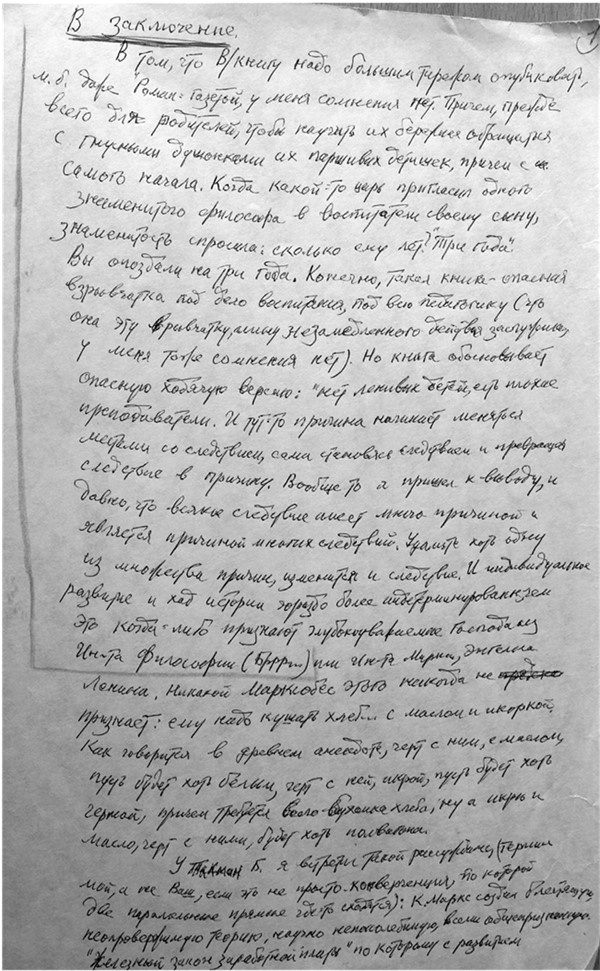 1
В заключение.
В том, что В/книгу надо большим тиражом опубликовать,
м.б. даже "Роман-газетой", у меня сомнения нет. Причем, прежде
всего для родителей, чтобы научить их бережно обращаться
с гнусными душонками их паршивых детишек, причем с
самого начала. Когда какой-то царь пригласил одного
знаменитого философа в воспитатели своему сыну,
знаменитость спросила: сколько ему лет? "Три года".
Вы опоздали на три года. Конечно, такая книга - опасная
взрывчатка под дело воспитания, под всю педагогику (что
она эту взрывчатку, мину незамедленного действия заслужила,
у меня тоже сомнения нет). Но книга обосновывает
опасную ходячую версию: "нет ленивых детей, есть плохие
преподаватели. И тут-то причина начинает меняться
местами со следствием, сама становясь следствием и превращая
следствие в причину. Вообще-то я пришел к выводу, и
давно, что всякое следствие имеет много причин и
является причиной многих следствий. Удалите хоть одну
из множества причин, изменится и следствие. И индивидуальное
развитие и ход истории гораздо более индетерминированы, чем
это когда-либо признают глубокоуважаемые Господа из
Ин-та Философии (Бррр...) или Ин-та Маркса, Энгельса
Ленина. Никакой Марксобес этого никогда не
признает: ему надо кушать хлеб... с маслом и икоркой.
Как говорится в древнем анекдоте, черт с ним, с маслом,
пусть будет хоть белым, черт с ней, икрой, пусть будет хоть
черной, причем требуется всего буханка хлеба, ну а икры и
масло, черт с ними, будет хоть полвагона.
У Б. я встретил такой рассуждизм (термин
мой, а не Ваш, если это не просто конвергенция, по которой
две параллельные прямые где-то сходятся): К. Маркс создал блестящую,
неопровержимую теорию, научно непоколебимую, всеми общепризнанную
"Железный закон заработной платы" по которому с развитием